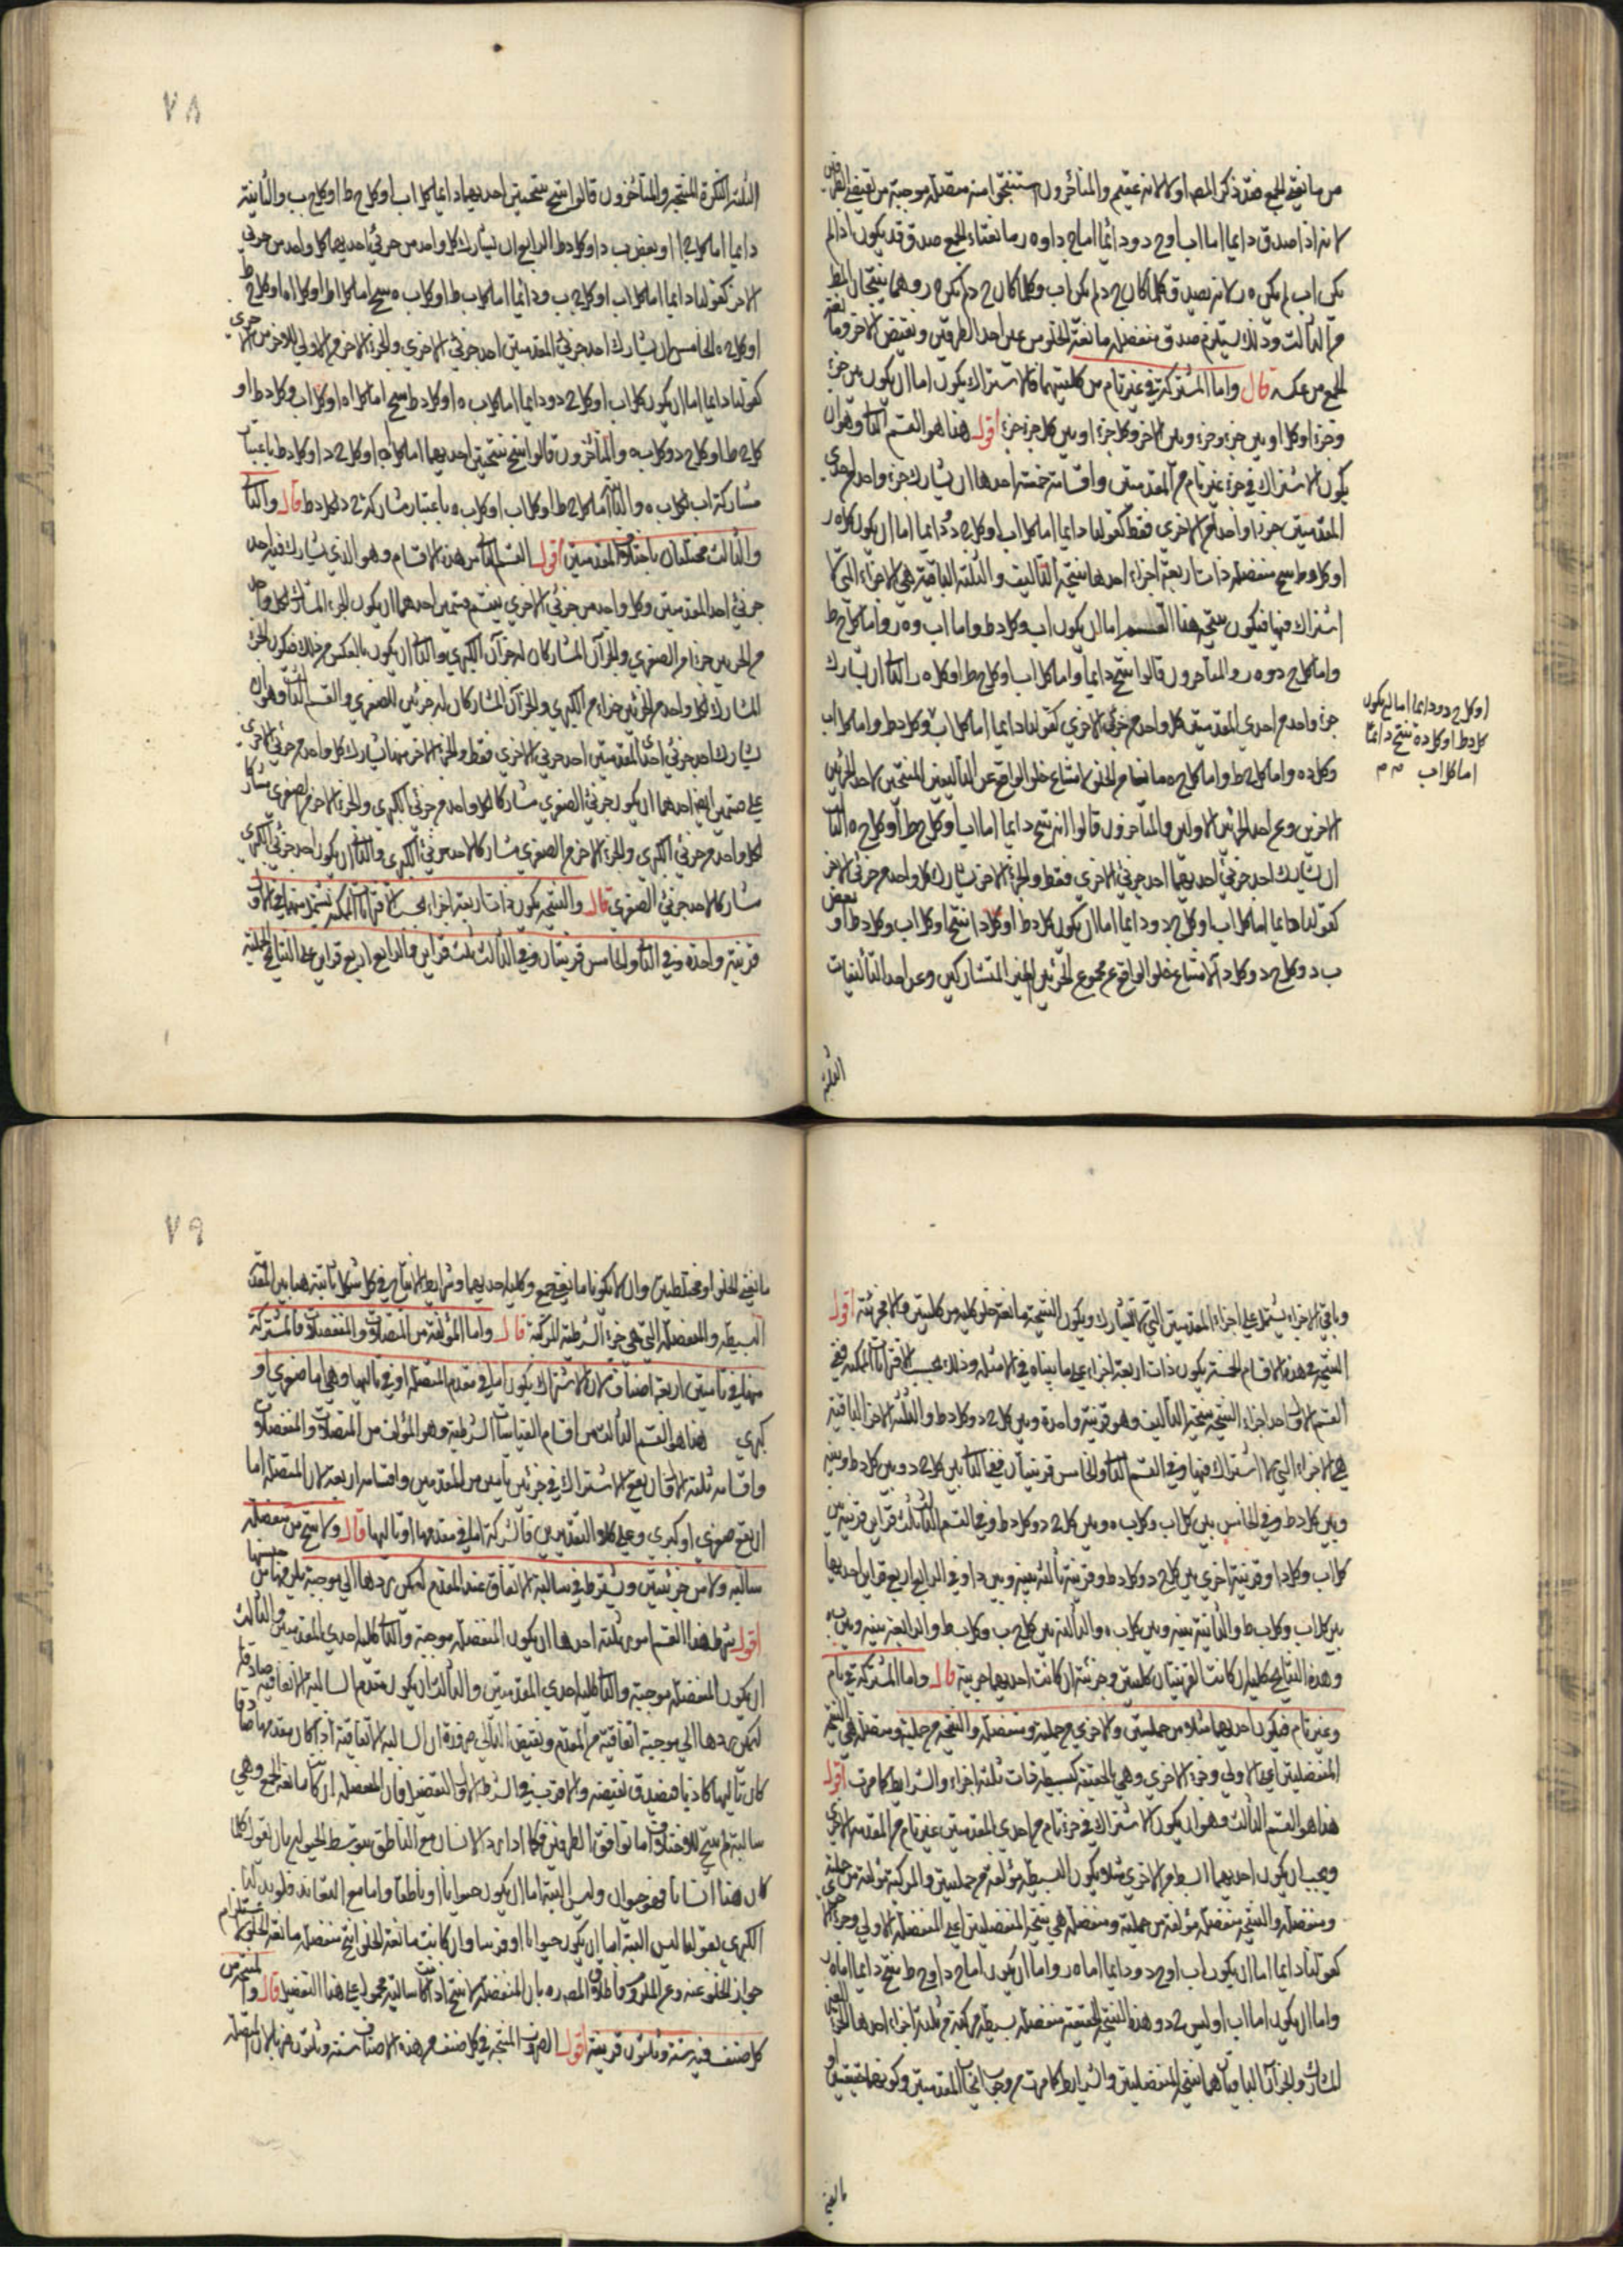 من مانعتي الجمع فقد ذكر المص اولا لانه عقيم والمتأخرون استنتجوا منه متصلة موجبة من نقيضي الطرفين
لانه اذا صدق دايما اما اب او ج د ودائما اما ج د او ه ر مانعتا الجمع صدق قد يكون اذا لم
يكن اب لم يكن ه ر لانه يصدق كلما كان ج د لم يكن اب وكلما كان ج د لم يكن ه ر وهما ينتجان المط
من الثالث وذلك يستلزم صدق منفصلة مانعة الخلو من عين احد الطرفين ونقيض الاخر ومانعة
الجمع من عكسه قال واما المشتركة في غير تام من كلتيهما فالاشتراك يكون اما ان يكون بين جزء
وجزء او كل او بين جزء وجزء وبين الاخر وكل جزء او بين كل جزء جزء اقول هذا هو القسم الثا وهو ان
يكون الاشتراك في جزء غير تام من المقدمتين واقسامه خمسة احدها ان يشارك جزء واحد من احدى
المقدمتين جزءا واحدا من الاخرى فقط كقولنا دايما اما كل اب او كل ج د ودائما اما ان يكون كل ه ر
او كل د ط ينتج منفصلة ذات اربعة اجزاء احدها نتيجة التأليف والثلثة الباقية هي الاجزاء التي لا
اشتراك فيها فيكون نتيجة هذا القسم اما ان يكون اب وكل د ط واما اب وه ر واما كل ج ط
واما كل ج د وه ر والمتأخرون قالوا انتج دايما واما كل اب او كل ج ط او كل ه ر الثا ان يشارك
جزء واحد من احدى المقدمتين كل واحد من جزئي الاخرى كقولنا دايما اما كل اب وكل د ط واما كل اب
وكل د ه واما كل ج ط واما كل ج ه مانعة من الخلو لامتناع خلو الواقع عن التأليفين المنتجين لاحد الجزئين
الاخرين وعن احد الجزئين الاولين والمتأخرون قالوا انه ينتج دايما اما اب او كل ج ط او كل ج ه الثالث
ان يشارك احد جزئي احديهما احد جزئي الاخرى فقط والجزء الاخر يشارك كل واحد من جزئي الاخر
كقولنا دايما اما كل اب او كل ج د ودايما اما ان يكون كل د ط او كل د ا ينتج او كل اب وكل د ط او بعض
ب د وكل ج د وكل د ا لامتناع خلو الواقع عن مجموع الجزئين الغير المتشاركين وعن احد التأليفات
الثلثة
او كل ج د ودايما اما ان يكون
كل د ط او كل د ه ينتج دائما
اما كل اب صح
٧٨
الثلثة المذكورة المنتجة والمتأخرون قالوا انتج نتيجتين احديهما دايما كل اب او كل ج ط او كل ج ب والثانية
دايما اما كل ج ا او بعض ب د او كل د ط الرابع ان يشارك كل واحد من جزئي احديهما كل واحد من جزئي
الاخر كقولنا دايما اما كل اب او كل ج ب ودائما اما كل ب ط او كل ب ه ينتج اما كل ا ط او كل ا ه او كل ج ط
او كل ج ه الخامس ان يشارك احد جزئي المقدمتين احد جزئي الاخرى والجزء الاخر من الاولى للاخر من الاخرى
كقولنا دايما اما ان يكون كل اب او كل ج د ودايما اما كل ب ه او كل د ط ينتج اما كل ا ه او كل اب وكل د ط او
كل ج ط او كل ج د وكل ب ه والمتأخرون قالوا انتج نتيجتين احديهما اما كل ا ه او كل ج د او كل د ط باعتبار
مشاركة اب لكل ب ه والثانية اما كل ج ط او كل اب او كل ب ه باعتبار مشاركة ج د لكل د ط قال والثا
والثالث مختلفان باختلاف المقدمتين اقول القسم الثا من هذه الاقسام وهو الذي يشارك فيه احد
جزئي احد المقدمتين وكل واحد من جزئي الاخرى ينقسم قسمين احدهما ان يكون الجزء المشارك لكل واحد
من الجزئين جزءا من الصغرى والجزآن المشاركان له جزآن الكبرى والثا ان يكون بالعكس من ذلك فيكون الجزء
المشارك لكل واحد من الجزئين جزءا من الكبرى والجزآن المشاركان له جزئين للصغرى والقسم الثالث وهو ان
يشارك احد جزئي احد المقدمتين احد جزئي الاخرى فقط والجزء الاخر منها يشارك كل واحد من جزئي الاخرى
على قسمين ايضا احدهما ان يكون جزئي الصغرى مشاركا لكل واحد من جزئي الكبرى والجزء الاخر من الصغرى مشاركا
لكل واحد من جزئي الكبرى والجزء الاخر من الصغرى مشاركا لاحد جزئي الكبرى والثا ان يكون احد جزئي الكبرى
مشاركا لاحد جزئي الصغرى قال والنتيجة يكون ذات اربعة اجزاء بحسب الاقترانات الممكنة يشتمل منها في الاول
قرينة واحدة وفي الثا والخامس قرينتان وفي الثالث ثلث قراين وفي الرابع اربع قراين على النتايج الحملية
وباقي الاجزاء يشتمل على اجزاء المقدمتين التي لا تتشارك ويكون النتيجة مانعة خلو كلية من كليتين والا فجزئية اقول
النتيجة في هذه الاقسام الخمسة يكون ذات اربعة اجزاء على ما بيناه في الامثلة وذلك بحسب الاقترانات الممكنة ففي
القسم الاول احد اجزاء النتيجة نتيجة التأليف وهو قرينة واحدة وبين كل ج د وكل د ط والثلثة الاجزاء الباقية
هي الاجزاء التي لا اشتراك فيها وفي القسم الثا والخامس قرينتان ففي الثا بين كل ج د وبين كل د ط وبينه
وبين كل د ط وفي الخامس بين كل اب وكل ب ه وبين كل ج د وكل د ط وفي القسم الثالث ثلث قراين قرينة بين
كل اب وكل د ا وقرينة اخرى بين كل ج د وكل د ط وقرينة ثالثة بينه وبين د ا وفي الرابع اربع قراين احديها
بين كل اب وكل ب ط والثانية بينه وبين كل ب ه والثالثة بين كل ج ب وكل ب ط والرابعة بينه وبين ب ه
وهذه النتايج كلية ان كانت القرينتان كليتين وجزئية ان كانت احديهما جزئية قال واما المشتركة في تام
وغير تام فيكون احديهما مثلا من حمليتين والاخرى من حملية ومنفصلة والنتيجة من حملية ومنفصلة هي نتيجة
المنفصلتين اعني الاولى وجزء الاخرى وهي الحقيقة كبسيطة ذات ثلثة اجزاء والشرايط كما مرت اقول
هذا هو القسم الثالث وهو ان يكون الاشتراك في جزء تام من احدى المقدمتين غير تام من المقدمة الاخرى
ويجب ان يكون احديهما ابسط من الاخرى مثلا يكون البسيطة مؤلفة من حمليتين والمركبة مؤلفة من حملية
ومنفصلة والنتيجة منفصلة مؤلفة من حملية ومنفصلة هي نتيجة المنفصلتين اعني المنفصلة الاولى وجزء الاخرى
كقولنا دايما اما ان يكون اب او ج د ودايما اما ه ر واما ان يكون اما ج د او ح ط ينتج دايما اما ه ر
واما ان يكون اما اب او ليس ج د وهذه النتيجة الحقيقية منفصلة بسيطة مركبة من ثلثة اجزاء احدها الجزء الغير
المشارك والجزآن الباقيان هما نتيجة المنفصلتين والشرايط كما مرت من وجوب ايجاب المقدمتين وكونهما حقيقتين او
مانعتي
٧٩
مانعتي الخلو او مختلطتين وان لا يكونا مانعتي جمع وكلية احديهما وشرايط الانتاج في كل شكل ثابتة هنا بين المقدمة
البسيطة والمنفصلة التي هي جزء الشرطية المركبة قال واما المؤلفة من المتصلات والمنفصلات فالمشتركة
منها في تامين اربعة اصناف لان الاشتراك يكون اما في مقدم المتصلة او في تاليها وهي اما صغرى او
كبرى هذا هو القسم الثالث من اقسام القياسات الشرطية وهو المؤلف من المتصلات والمنفصلات
واقسامه ثلثة الاول ان يقع الاشتراك في جزئين تامين من المقدمتين واقسامه اربعة لان المتصلة اما
ان يقع صغرى او كبرى وعلى كلا التقديرين فالشركة اما في مقدمها او تاليها قال ولا ينتج من منفصلة
سالبة ولا من جزئيتين ويشترط في سالبة الاتفاق عند المقدم ليمكن ردها الى موجبة يلزمها من جنسها
اقول شرط هذا القسم امور ثلثة احدها ان يكون المنفصلة موجبة والثا كلية احدى المقدمتين والثالث
ان يكون المنفصلة موجبة والثا كلية احدى المقدمتين والثالث ان يكون مقدم السالبة الاتفاقية صادقا
ليمكن ردها الى موجبة اتفاقية من المقدم ونقيض التالي ضرورة ان السالبة الاتفاقية اذا كان مقدمها صادقا
كان تاليها كاذبا فيصدق نقيضه والاقرب في الشرط الاول التفصيل فان المنفصلة ان كانت مانعة الجمع وهي
سالبة لم ينتج للاختلاف اما توافق الطرفين فكما اذا ورد الانسان مع الناطق بتوسط الحيوان بان نقول كلما
كان هذا انسانا فهو حيوان وليس البتة اما ان يكون حيوانا او ناطقا واما مع التعاند فلو بدلنا
الكبرى بقولنا ليس البتة اما ان يكون حيوانا او فرسا وان كانت مانعة الخلو انتج منفصلة مانعة الخلو لاستلزام
جواز الخلو عنه وعن الملزوم فاطلاق المص ره بان المنفصلة لا تنتج اذا كانت سالبة محمول على هذا التفصيل قال والمنتجة من
كل صنف فيه ستة وثلثون قرينة اقول الضروب المنتجة في كل صنف من هذه الاصناف ستة وثلثون ضربا لان المتصلة